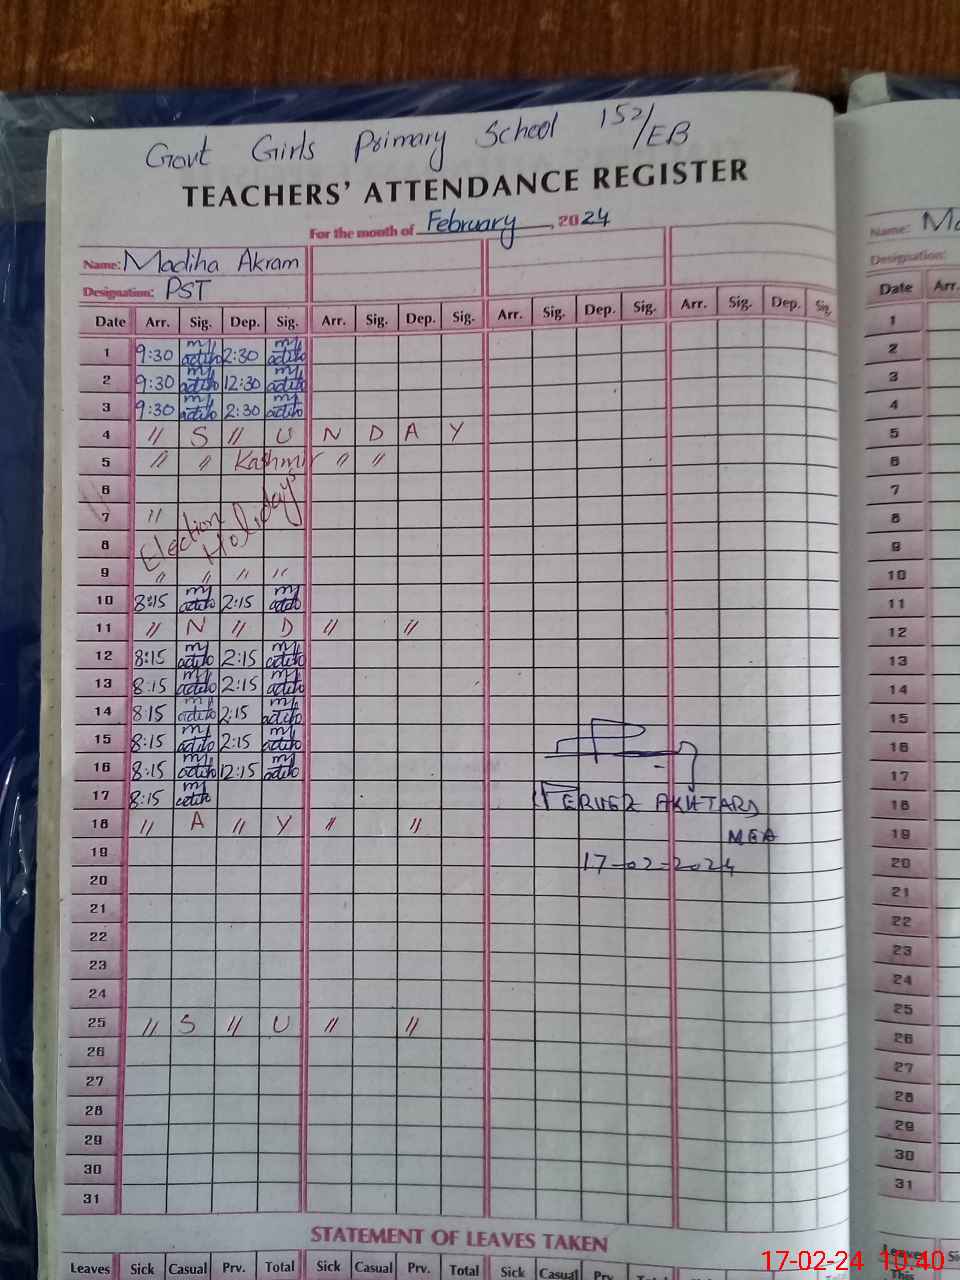 Govt Girls Primary School 152/EB
TEACHERS' ATTENDANCE REGISTER
For the month of February, 2024
Name: Madiha Akram
Designation: PST
Date Arr. Sig. Dep. Sig. Arr. Sig. Dep. Sig. Arr. Sig. Dep. Sig. Arr. Sig. Dep. Sig.
1 9:30 2:30
2 9:30 12:30
3 9:30 2:30
4 " S " U N D A Y
5 " " Kashmir " "
6
7 "
8 Election Holidays
9 " " " "
10 8:15 2:15
11 " N " D " "
12 8:15 2:15
13 8:15 2:15
14 8:15 2:15
15 8:15 2:15
16 8:15 12:15
17 8:15
PERVEZ AKHTAR
18 " A " Y " "
MEA
19
17-02-2024
20
21
22
23
24
25 " S " U " "
26
27
28
29
30
31
STATEMENT OF LEAVES TAKEN
Leaves Sick Casual Prv. Total Sick Casual Prv. Total Sick Casual Prv. Total Sick
Name: Ma
Designation:
Date Arr.
1
2
3
4
5
6
7
8
9
10
11
12
13
14
15
16
17
18
19
20
21
22
23
24
25
26
27
28
29
30
31
Leaves
17-02-24 10:40